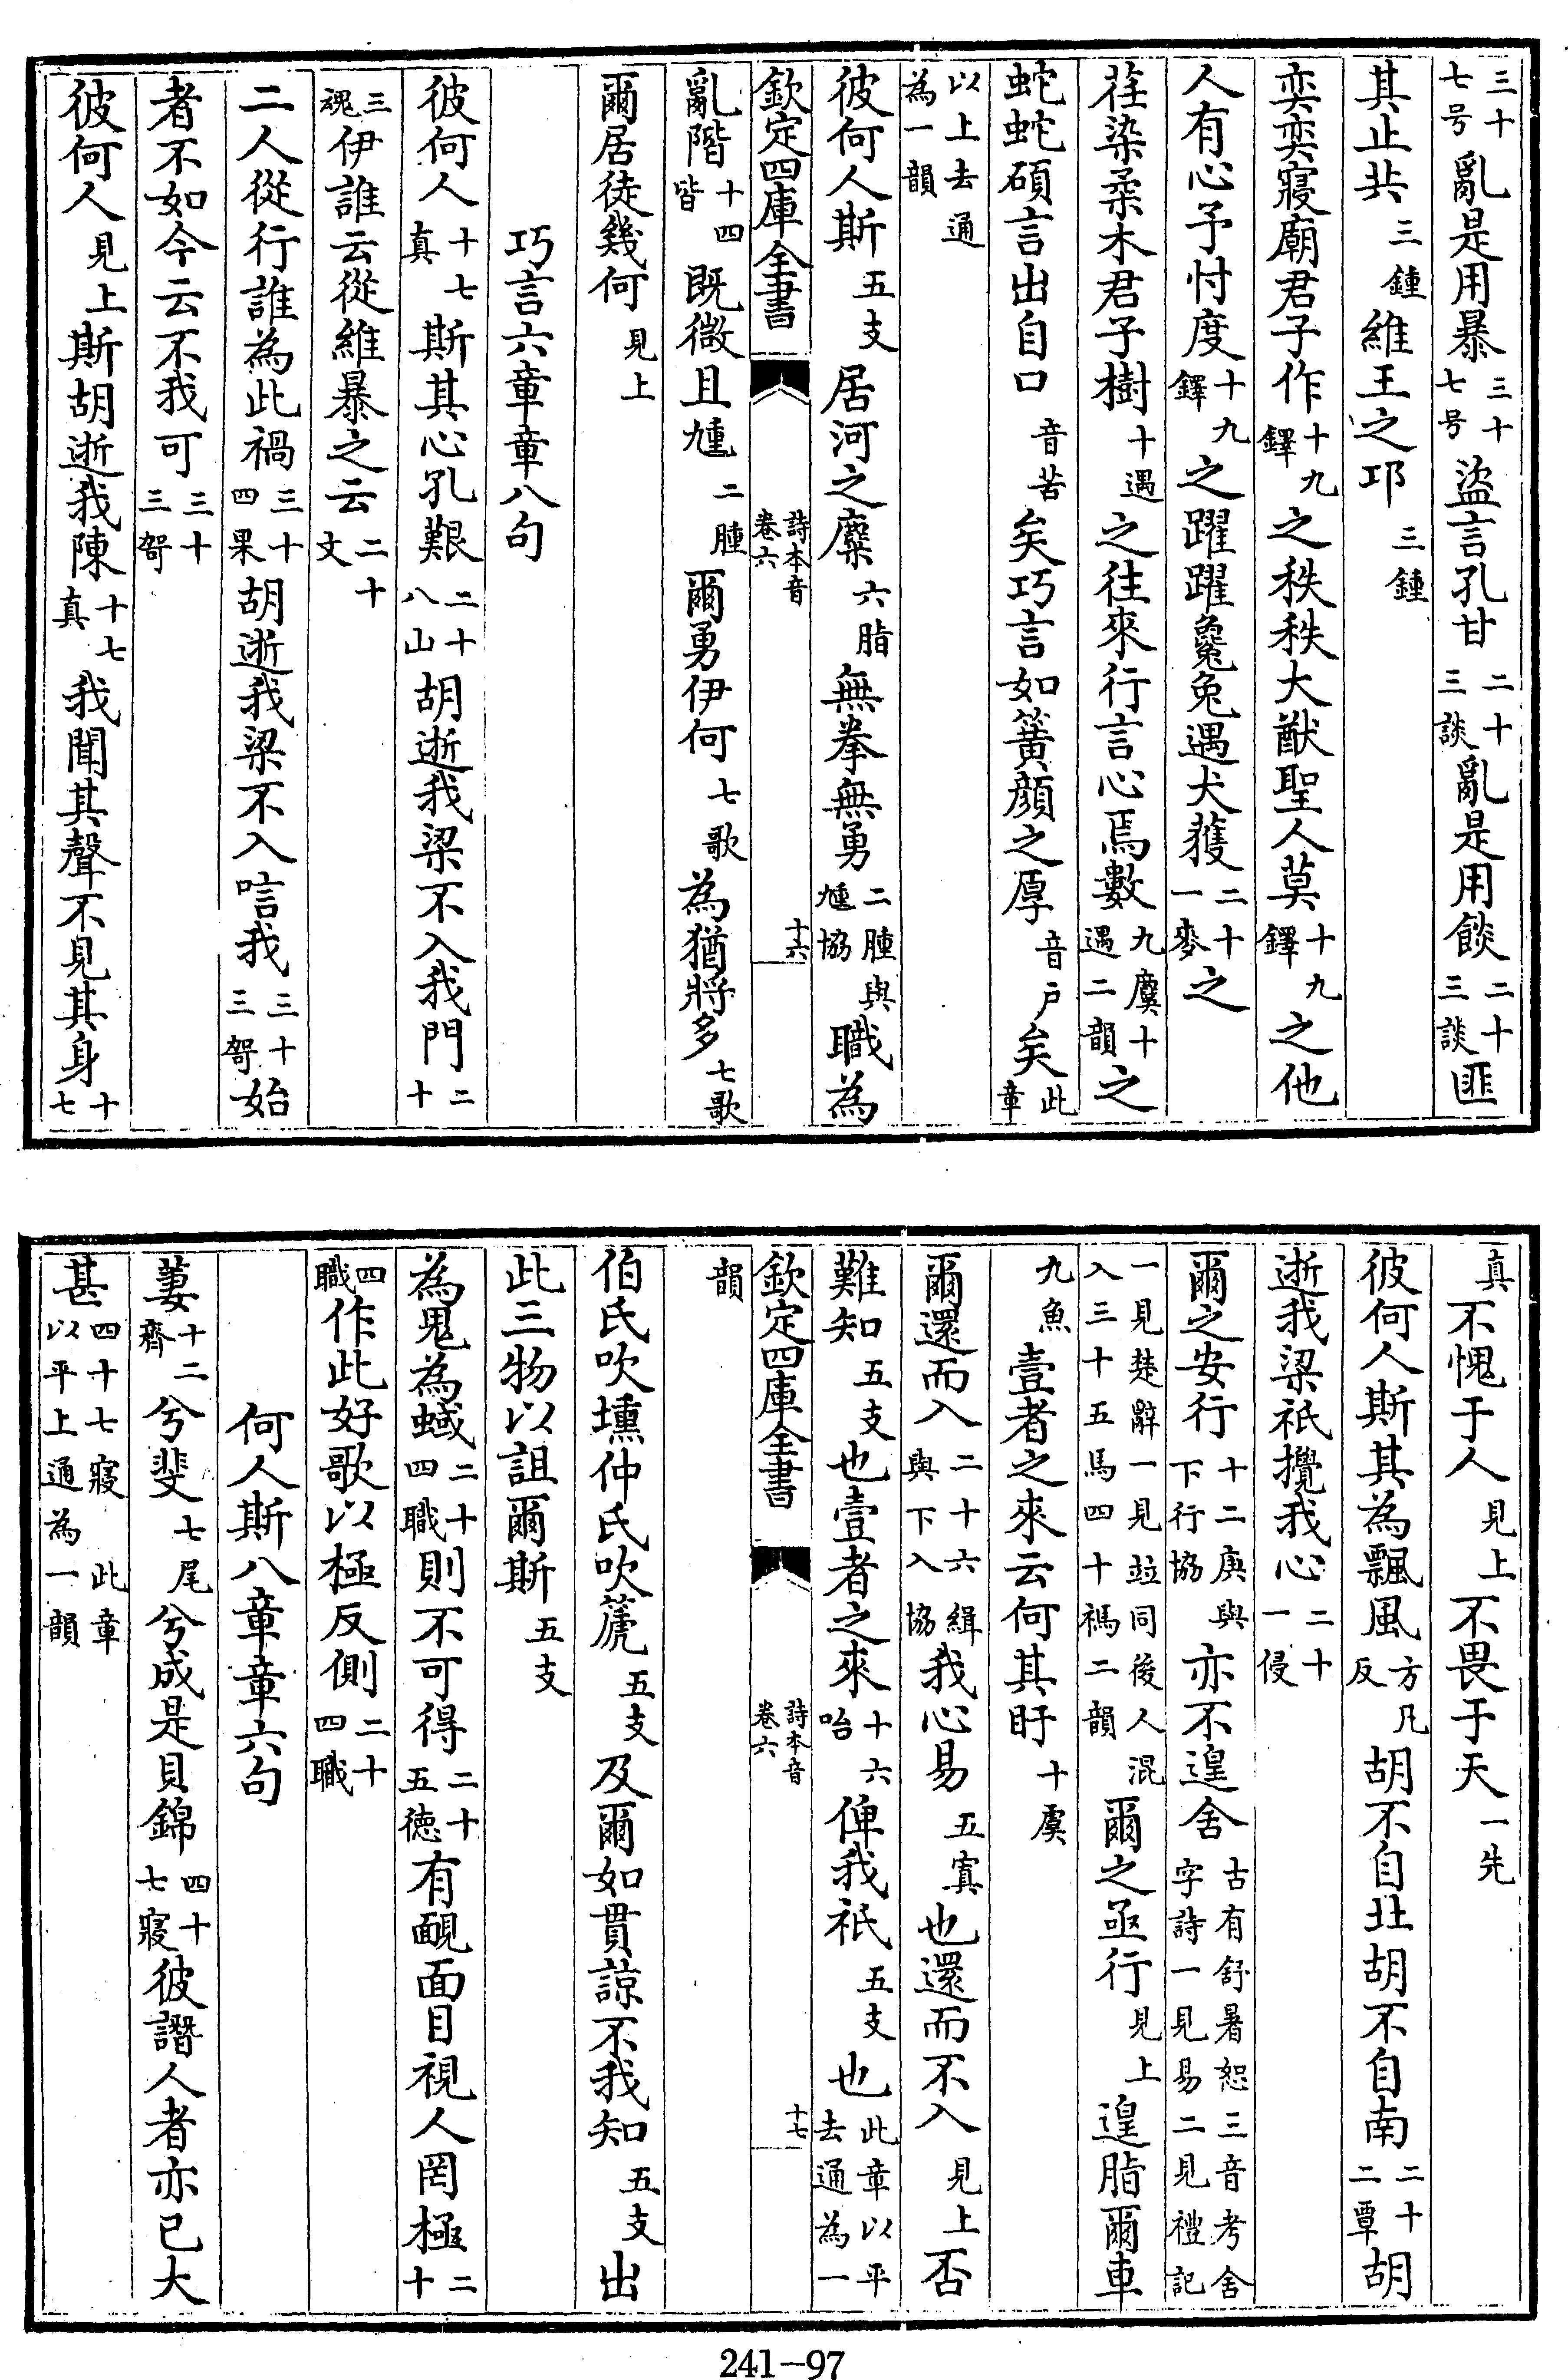 三十七号亂是用暴三十七号盜言孔甘二十三談亂是用餤二十三談匪
其止共三鍾維王之邛三鍾
奕奕寢廟君子作十九鐸之秩秩大猷聖人莫十九鐸之他
人有心予忖度十九鐸之躍躍毚兔遇犬獲二十一麥之
荏染柔木君子樹十遇之往來行言心焉數九麌十遇二韻之
蛇蛇碩言出自口音苦矣巧言如簧顏之厚音戶矣此章
以上去通為一韻
彼何人斯五支居河之麋六脂無拳無勇二腫與尰協職為
欽定四庫全書 詩本音卷六 十六
亂階十四皆既微且尰二腫爾勇伊何七歌為猶將多七歌
爾居徒幾何見上
巧言六章章八句
彼何人十七真斯其心孔艱二十八山胡逝我梁不入我門二十
三魂伊誰云從維暴之云二十文
二人從行誰為此禍三十四果胡逝我梁不入唁我三十三哿始
者不如今云不我可三十三哿
彼何人見上斯胡逝我陳十七真我聞其聲不見其身十七
真不愧于人見上不畏于天一先
彼何人斯其為飄風方凡反胡不自北胡不自南二十二覃胡
逝我梁祇攪我心二十一侵
爾之安行十二庚與下行協亦不遑舍古有舒暑恕三音考舍字詩一見易二見禮記
一見楚辭一見竝同後人混入三十五馬四十禡二韻爾之亟行見上遑脂爾車
九魚壹者之來云何其盱十虞
爾還而入二十六緝與下入協我心易五寘也還而不入見上否
難知五支也壹者之來十六咍俾我祇五支也此章以平去通為一
欽定四庫全書 詩本音卷六 十七
韻
伯氏吹壎仲氏吹篪五支及爾如貫諒不我知五支出
此三物以詛爾斯五支
為鬼為蜮二十四職則不可得二十五德有靦面目視人罔極二十
四職作此好歌以極反側二十四職
何人斯八章章六句
萋十二齊兮斐七尾兮成是貝錦四十七寢彼譖人者亦已大
甚四十七寢此章以平上通為一韻
241-97